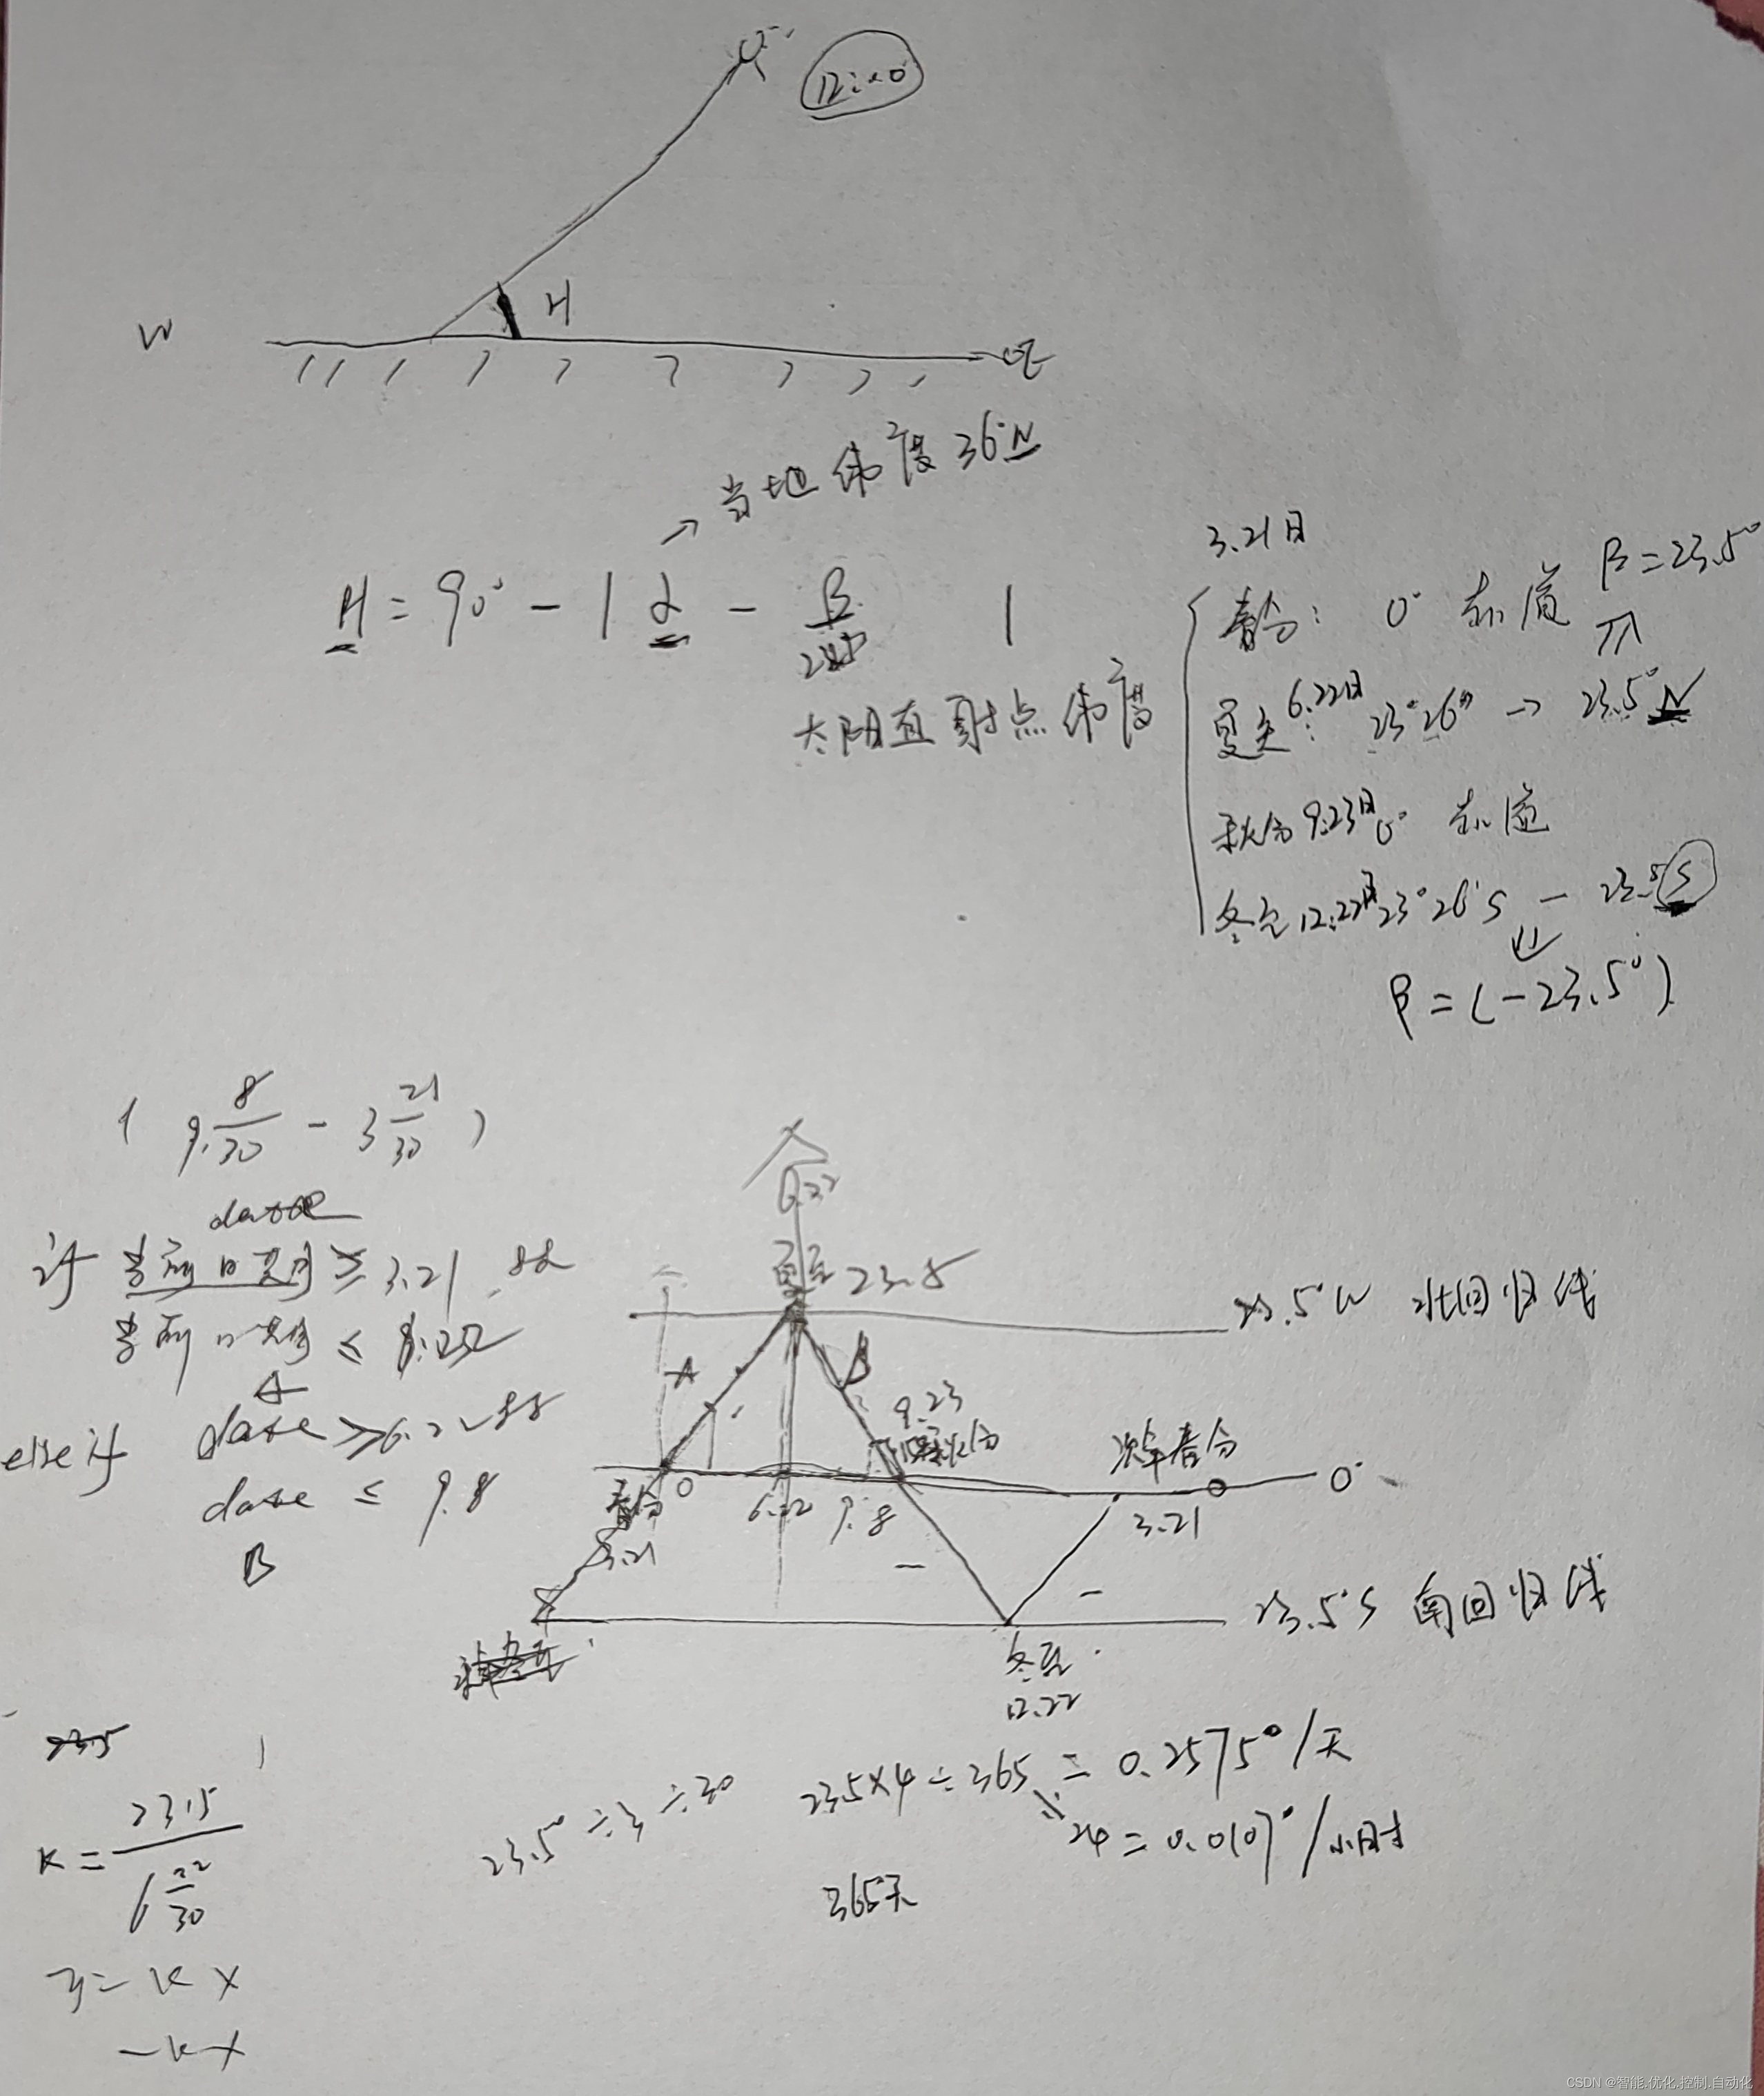 12:00
H
W
→当地纬度36°N
H = 90° - | α - β |
太阳直射点纬度
3.21日
春分: 0° 赤道 β=23.5°
夏至: 6.22日 23°26" → 23.5°N
秋分 9.23日 0° 赤道
冬至 12.22日 23°26'S - 23.5S
β = (-23.5°)
( 9 8/30 - 3 21/30 )
date
if 当前日期 ≥ 3.21 &&
当前日期 ≤
A
else if date ≥ 6.22 &&
date ≤ 9.8
B
6.22
夏至 23.5
23.5°N 北回归线
A
B
9.23
秋分
次年春分
春分 0
6.22
9.8
3.21
0°
3.21
-
-
23.5°S 南回归线
冬至
12.22
23.5
K = 23.5 / 6 22/30
y = kx
-kx
23.5° ÷ 3 ÷ 30
23.5×4 ÷ 365 = 0.2575°/天
24 = 0.0107°/小时
365天
CSDN @智能.优化.控制.自动化